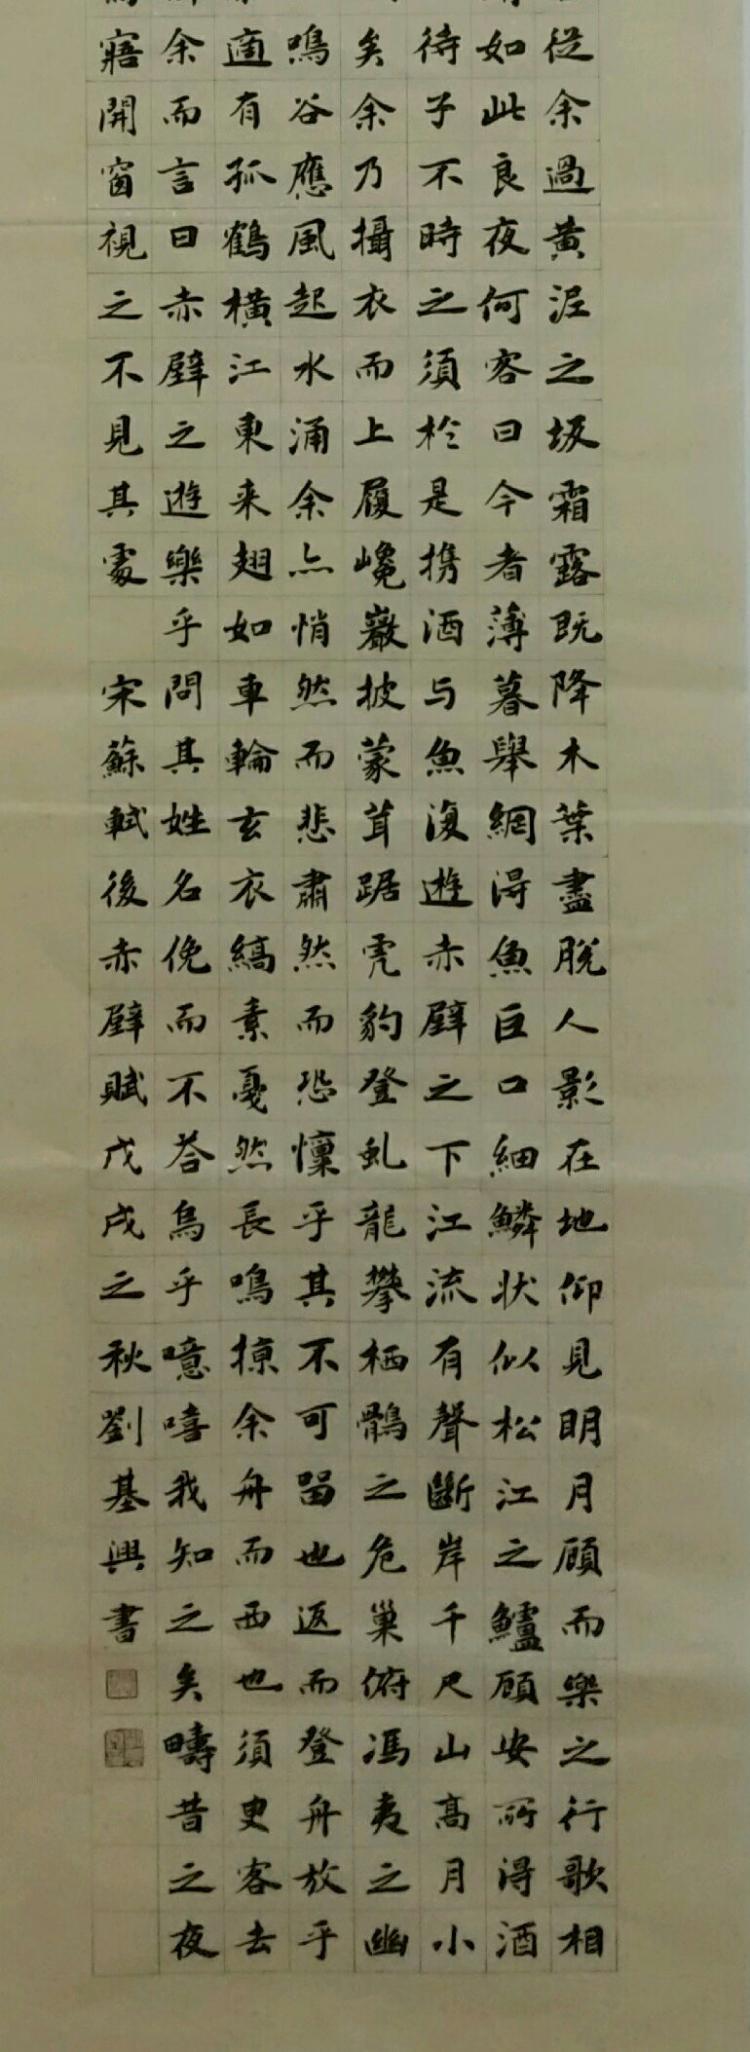 從余過黃泥之坂霜露既降木葉盡脫人影在地仰見明月顧而樂之行歌相
如此良夜何客曰今者薄暮舉網得魚巨口細鱗狀似松江之鱸顧安所得酒
待子不時之須於是携酒与魚復遊赤壁之下江流有聲斷岸千尺山高月小
矣余乃攝衣而上履巉巖披蒙茸踞虎豹登虬龍攀栖鶻之危巢俯馮夷之幽
鳴谷應風起水涌余亦悄然而悲肅然而恐懍乎其不可留也返而登舟放乎
適有孤鶴橫江東来翅如車輪玄衣縞素戛然長鳴掠余舟而西也須臾客去
余而言曰赤壁之遊樂乎問其姓名俛而不荅烏乎噫嘻我知之矣疇昔之夜
寤開窗視之不見其處 宋蘇軾後赤壁賦戊戌之秋劉基興書